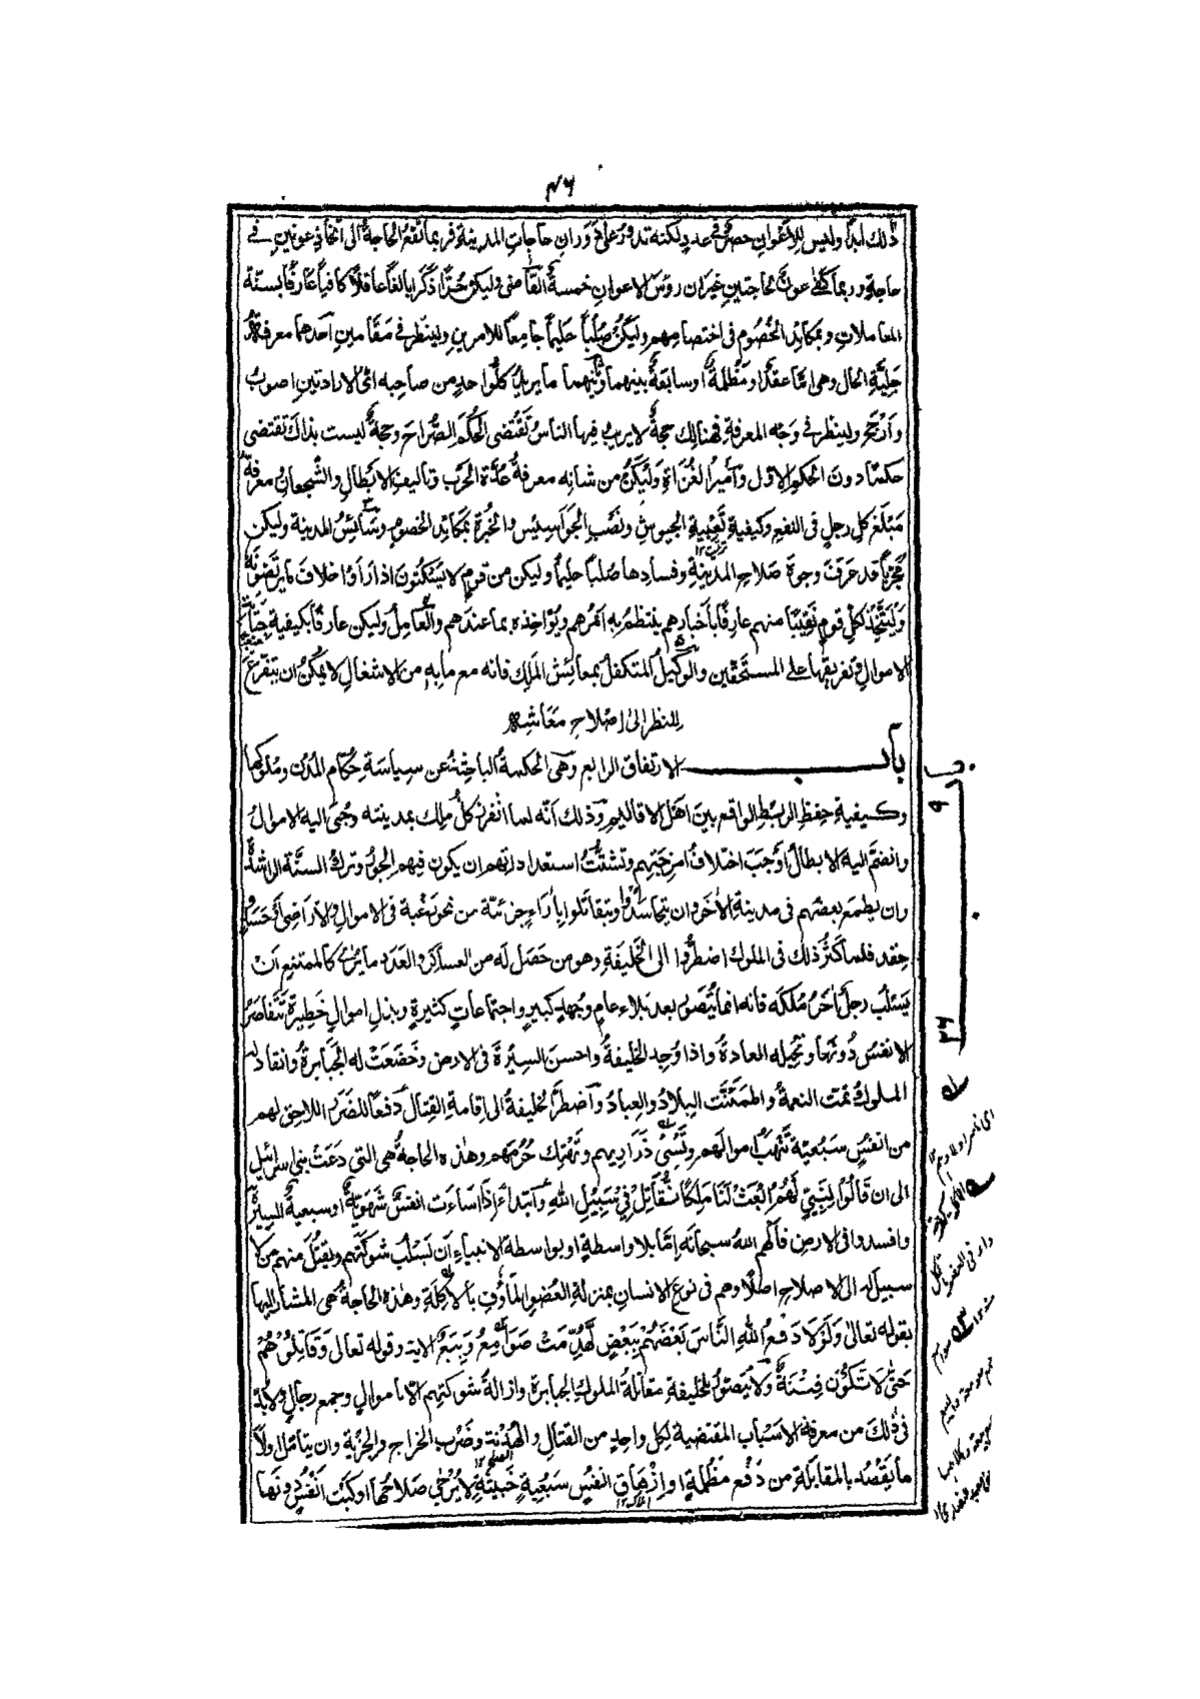 ۴۶
ذلك ابدًا وليس للأعوان حصرٌ في عددٍ لكنه تدور على دوران حاجاتِ المدينةِ فربما تقع الحاجةُ الى اتخاذ عونين في
حاجةٍ وربما كفى عونٌ لحاجتين غير ان رؤس الاعوانِ خمسةٌ القاضى وليكن حُرًّا ذكَرًا بالغًا عاقلًا كافيًا عارفًا بسنّة
المعاملاتِ وبمكائد الخُصُوم فى اختصامِهم وليكن صُلبًا حليمًا جامعًا للامرين ولينظر فى مقامين احدهما معرفة
جَلِيَّةِ الحال وهى امّا عقدٌ او مَظْلِمةٌ او سابقةٌ بينهما وثانيهما ما يريد كلُّ واحدٍ من صاحبه اىّ الارادتين اصوبُ
وأرجَحُ ولينظر فى وَجْه المعرفةِ فهنالك حجةٌ لا يريب فيها الناسُ تَقْتَضى الحُكْمَ الصُّراحَ وحجةٌ ليست بذاك تقتضى
حكمًا دون الحكمِ الاول وأميرُ الغُزاةِ وليكن من شانه معرفةُ عُدَّة الحَرْب وتاليفِ الابطالِ والشجعانِ ومعرفةُ
مَبْلَغ كل رجلٍ فى النفع وكيفيةِ تَعْبِيةِ الجيوشِ ونَصْبِ الجَواسِيس والخُبرة بمكائد الخصوم وسائِسُ المدينة وليكن
مُجَرَّبًا قد عرفَ وجوهَ صلاحِ المدينةِ وفسادِها صُلبًا حليمًا وليكن من قومٍ لا يَسْكُتون اذا رَأوا خلافَ ما يرتَضُونَهُ
وليتَّخِذْ لكلِ قومٍ نَقِيبًا منهم عارفًا بأخبارِهم ينتظم به أمرُهم ويُؤاخِذه بما عندهم والعامِلُ وليكن عارفًا بكيفيةِ جبايةِ
الاموالِ وتفريقها على المستحقين والوكيلُ المتكفلُ بمعائش المَلِك فانه مع ما به من الاشغالِ لا يمكن ان يتفرّغ
للنظر الى اصلاح معاشِه
بابــــ الارتفاق الرابع وهى الحكمةُ الباحثةُ عن سياسةِ حُكّام المُدُن ومُلوكها
وكيفيةِ حِفظِ الربطِ الواقع بين اهل الاقاليمِ وذلك انّه لما انفرز كلُّ ملِك بمدينته وجُبى اليه الاموالُ
وانضَمَّ اليه الابطالُ اوجَبَ اختلافُ امزِجَتِهم وتشتُّتُ استعداداتهم ان يكون فيهم الجورُ وتركُ السنّة الراشدة
وان يطمع بعضُهم فى مدينةِ الآخرِ وان يتحاسَدُوا ويتقاتلوا بآراءٍ جزئيّة من نحو رَغبة فى الاموالِ والأراضى او حَسَدٍ و
حِقدٍ فلما كَثُر ذلك فى الملوك اضطُرُّوا الى الخَلِيفةِ وهو من حَصَل لَه من العساكر والعُدَد ما يُرى كالممتنع أن
يَسلُب رجلٌ آخرُ مُلكَه فانه انما يُتصوَّر بعد بَلاءٍ عامٍ وجُهدٍ كبيرٍ واجتماعاتٍ كثيرةٍ وبذلِ اموالٍ خطيرةٍ تتقاصَرُ
الانفسُ دُونَها وتُحِيلُه العادةُ واذا وُجِد الخليفةُ واحسنَ السِّيْرةَ فى الارض وخَضَعَتْ له الجَبابِرةُ وانقاد له
الملوكُ تمّت النعمةُ واطمَأنَّت البِلادُ والعِبادُ واضطرَّ الخليفةُ الى اقامةِ القِتالِ دفعًا للضَرَر اللاحقِ لهم
من انفُسٍ سَبُعيّةٍ تَنْهَبُ اموالَهم وتَسْبى ذَرَارِيهم وتَهْتِك حُرَمَهم وهذه الحاجةُ هى التى دَعَتْ بنى اسرائيل
الى ان قالُوا لِنَبِىٍّ لَهُمُ ابْعَثْ لَنَا مَلِكًا نُقَاتِلْ فِى سَبِيلِ اللهِ وابتداءً اذا اساءَت انفسٌ شَهَويّةٌ او سبعيةٌ السيرةَ
وافسدوا فى الارض فألهم اللهُ سبحانَه إمّا بلا واسطةٍ او بواسطة الانبياءِ أن يَسلُب شوكتَهم ويقتُلَ منهم من لا
سبيلَ له الى الاصلاح اصلًا وهم فى نوع الانسانِ بمنزلةِ العُضوِ المَأوُف بالآكِلَةِ وهذه الحاجةُ هى المشار اليها
بقوله تعالى وَلَوْلَا دَفْعُ اللهِ النَّاسَ بَعْضَهُمْ بِبَعْضٍ لَّهُدِّمَتْ صَوَامِعُ وَبِيَعٌ الاية وقوله تعالى وَقَاتِلُوْهُمْ
حَتّٰى لَا تَكُوْنَ فِتْنَةٌ ولا يُتصوَّرُ للخليفةِ مقاتلةُ الملوكِ الجبابرةِ وازالةُ شوكتِهم الّا باموالٍ وجمع رجالٍ ولا بُدَّ
فى ذلكَ من معرفةِ الاسبابِ المقتضيةِ لكل واحدٍ من القتالِ والهُدْنةِ وضَرْب الخراجِ والجزيةِ وان يتامّل اولًا
ما يَقْصُد بالمقابلةِ من دَفْع مَظْلِمةٍ او إزْهاقِ انفسٍ سَبُعِيةٍ خَبيثةٍ لا يُرْجى صَلاحُها او كَبْتِ أنفُسٍ دُونَها